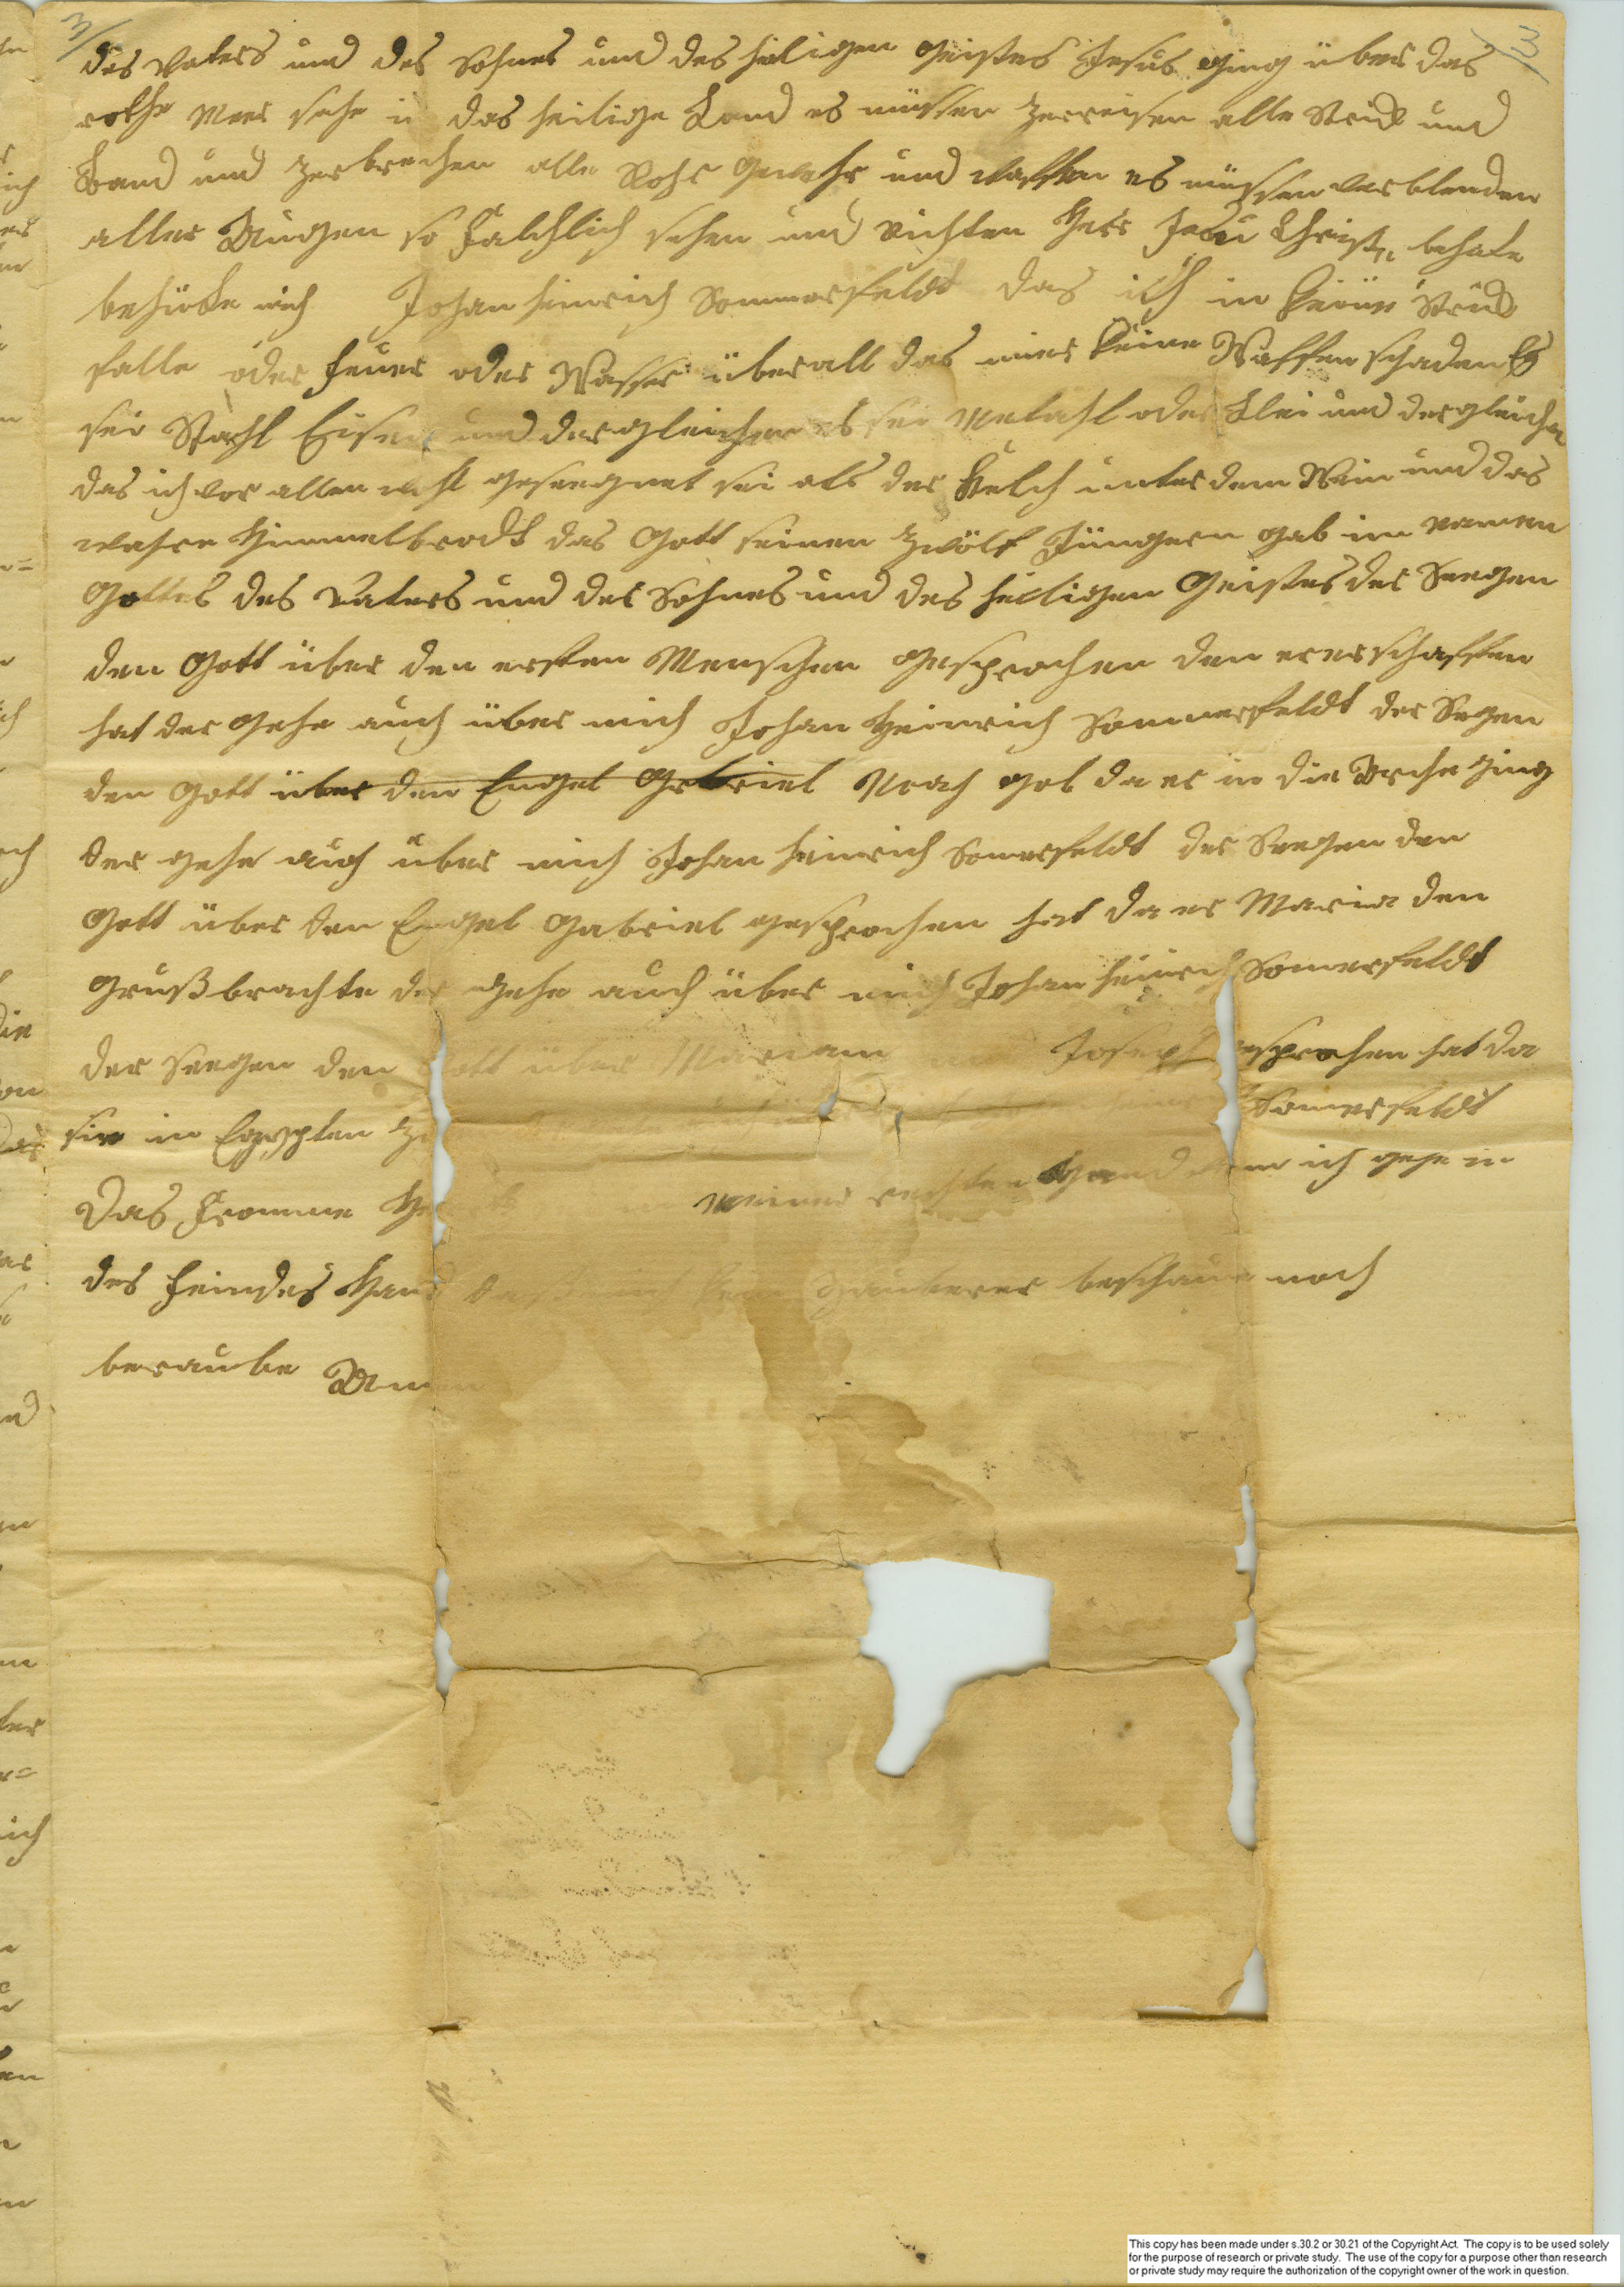 3/
3/
des Vaters und des Sohnes und des heiligen Geistes Jesus ging über das
rothe Meer sahe in das heilige Land es müssen zerreisen alle Strick und
Band und zerbrechen alle Rohr Gewehr und Waffen es müssen verblenden
alles Augen so falchlich sehen und richten Herr Jesu Christ behale
behüte mich Johan Heinrich Sommerfeldt das ich in keine Strick
falle oder Feuer oder Wasser überall das mir keine Waffen schaden Es
sei Stahl Eisen und dergleichen es sei Metahl oder Blei und dergleichen
das ich vor allen wohl geseegnet sei als der Kelch unter dem Wein und das
wahre Himmelbrodt das Gott seinen zwölf Jüngern gab im namen
Gottes des Vaters und des Sohnes und des heiligen Geistes der Seegen
den Gott über den ersten Menschen gesprochen den er erschaffen
hat der gehe auch über mich Johan Heinrich Sommerfeldt der Segen
den Gott über den Engel Gebriel Noah gab da er in die Arche ging
der gehe auch über mich Johan Heinrich Somerfeldt der Seegen den
Gott über den Engel Gabriel gesprochen hat da er Maria den
Gruß brachte der gehe auch über mich Johan Heinrich Somerfeldt
der Seegen den Gott über Mariam Joseph gesprochen hat da
sie in Egypten Somerfeldt
Das Fromme meiner rechten Hand ich gehe in
des Feindes Hand Zauberer beschaue noch
beraube Amen
This copy has been made under s.30.2 or 30.21 of the Copyright Act. The copy is to be used solely
for the purpose of research or private study. The use of the copy for a purpose other than research
or private study may require the authorization of the copyright owner of the work in question.